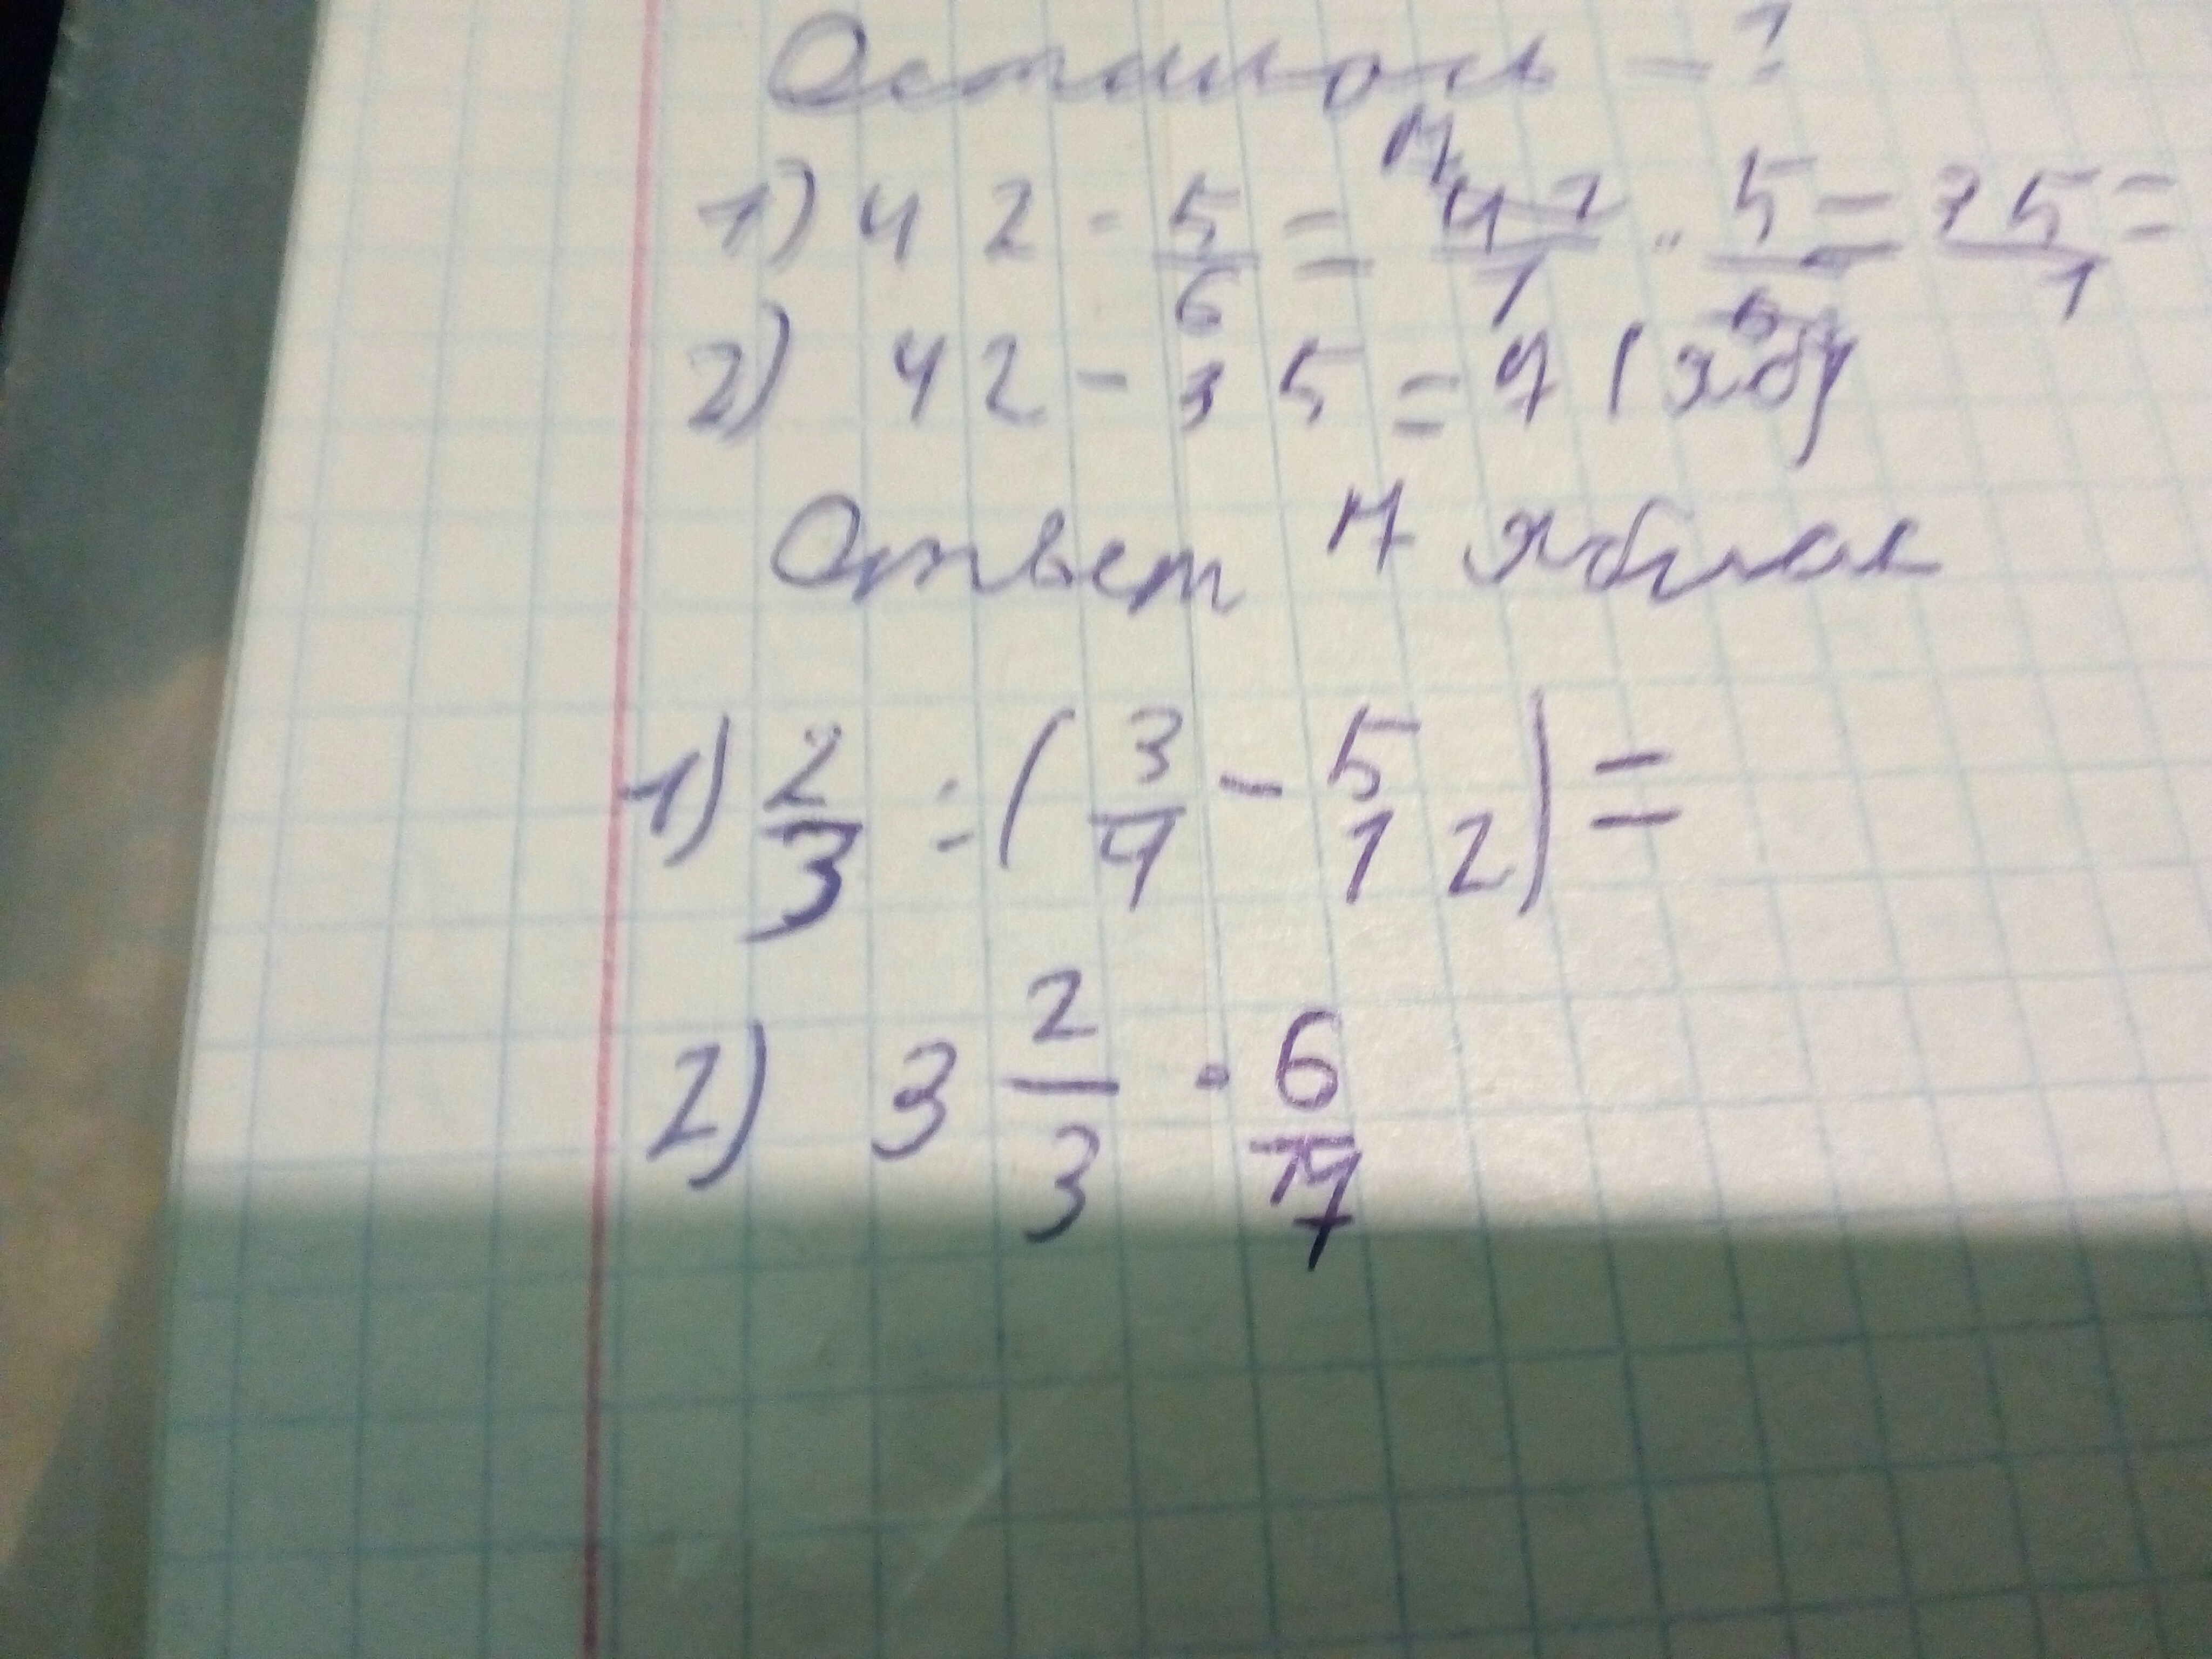 Осталось - ?
1) 42 · 5/6 = 42/1 · 5/6 = 35/1 =
2) 42 - 35 = 7 (ябл)
Ответ 7 яблок
1) 2/3 : (3/4 - 5/12) =
2) 3 2/3 · 6/7